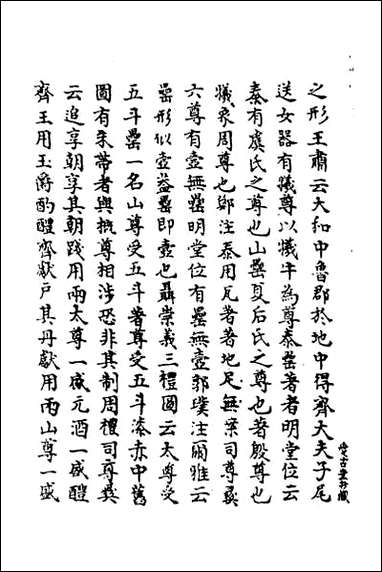 之形王肅云大和中魯郡於地中得齊大夫子尾
送女器有犧尊以犧牛為尊泰罍著者明堂位云
泰有虞氏之尊也山罍夏后氏之尊也著殷尊也
犧象周尊也鄭注泰用瓦著著地足無案司尊彛
六尊有壺無罍明堂位有罍無壺郭璞注爾雅云
罍形似壺益罍即壺也聶崇義三禮圖云太尊受
五斗罍一名山尊受五斗著尊受五斗漆赤中舊
圖有朱帶者與概尊相涉恐非其制周禮司尊彛
云追享朝享其朝踐用兩太尊一盛元酒一盛醴
齊王用玉爵酌醴齊獻尸其再獻用兩山尊一盛